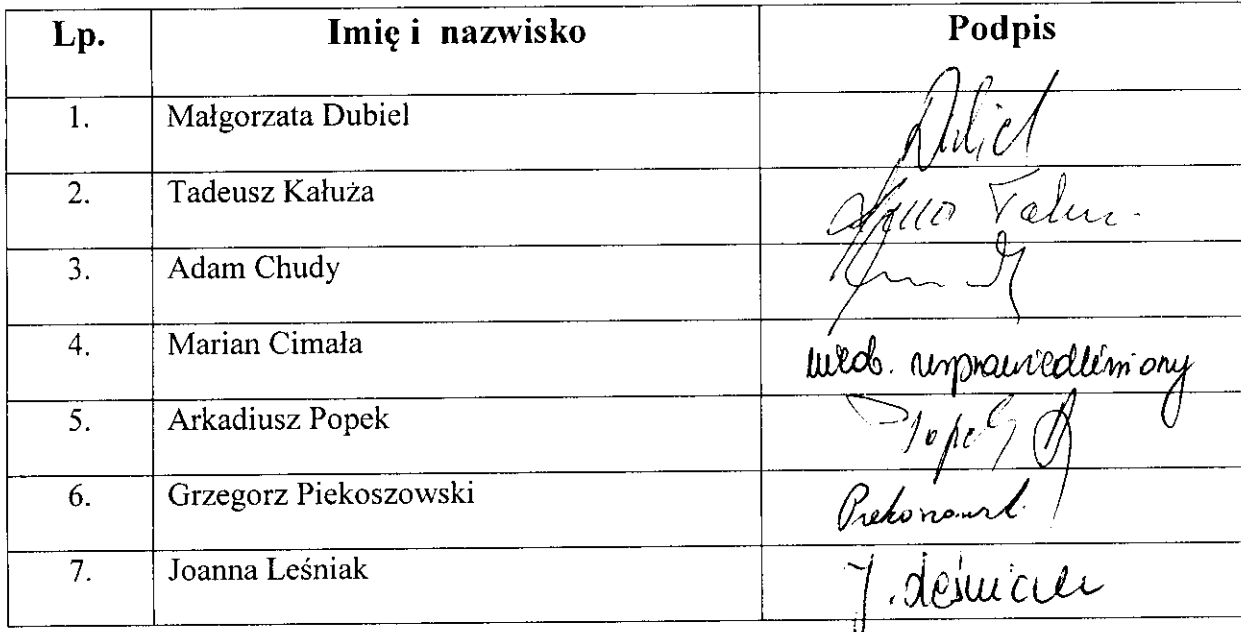 Lp. Imię i nazwisko Podpis
1. Małgorzata Dubiel Dubiel
2. Tadeusz Kałuża
3. Adam Chudy
4. Marian Cimała nieob. usprawiedliwiony
5. Arkadiusz Popek Popek A
6. Grzegorz Piekoszowski
7. Joanna Leśniak J. Leśniak